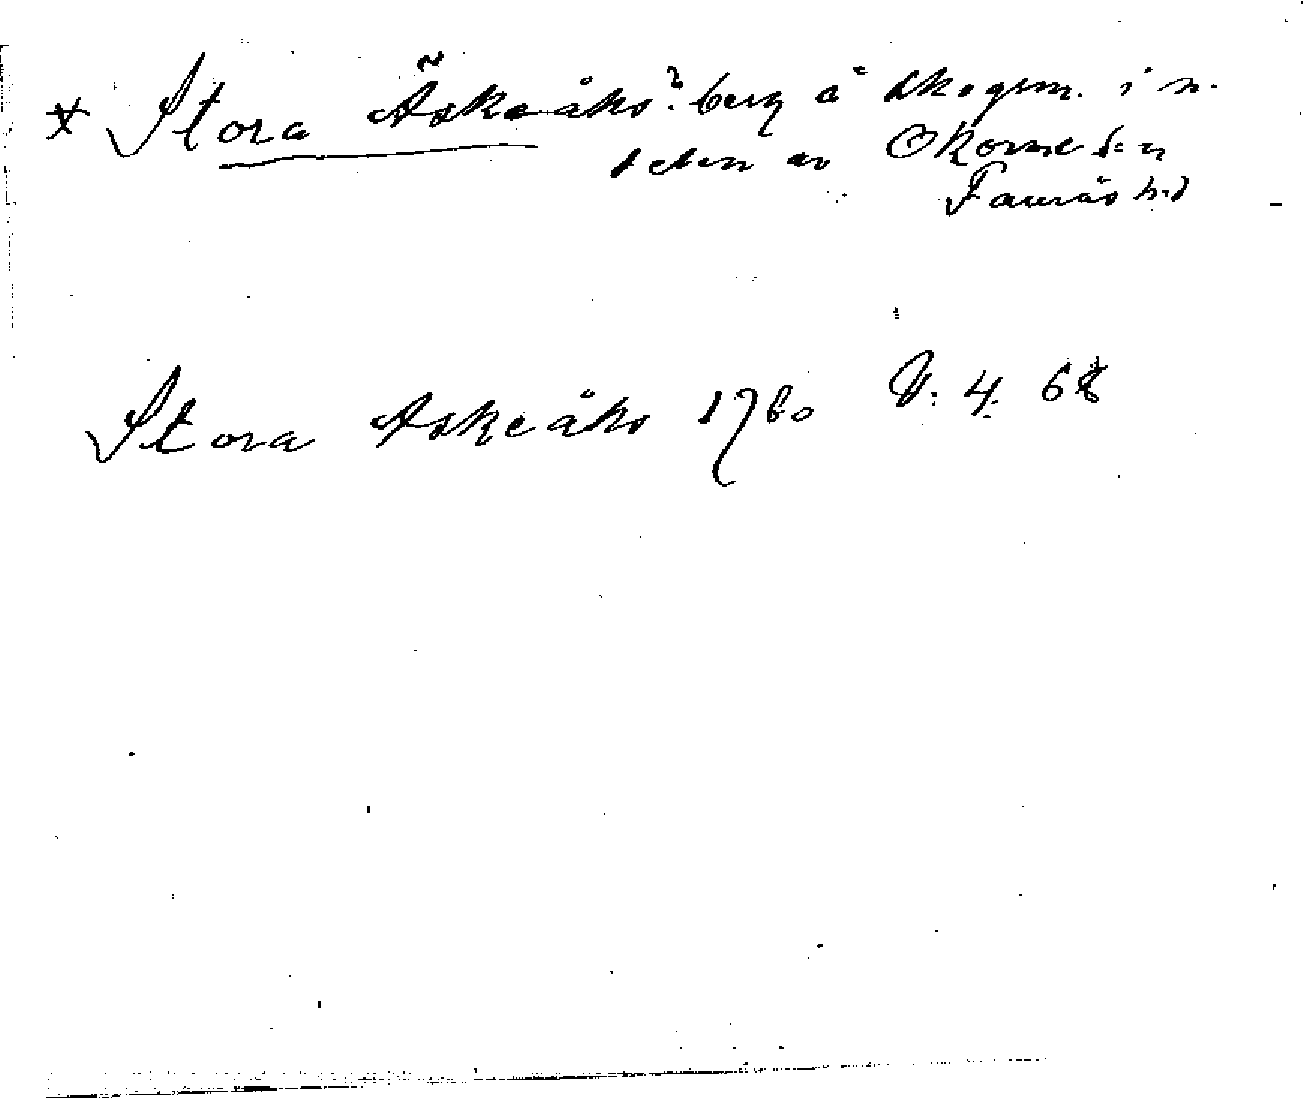 * Stora Askeåks? berg å skogsm. i n.
delen av Okome s:n
Faurås h:d
Stora Askeåks 1760 V: 4. 68